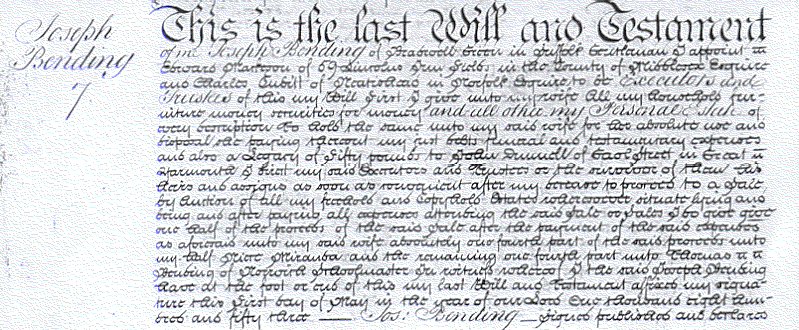 Joseph
Bending
7
This is the last Will and Testament
of me Joseph Bending of Bradwell Green in Suffolk Gentleman I appoint
Edward Mackson of 59 Lincolns Inn Fields in the County of Middlesex Esquire
and Charles Cubitt of Neatishead in Norfolk Esquire to be Executors and
Trustees of this my Will First I give unto my wife All my household fur-
niture money securities for money and all other my Personal Estate of
every description To hold the same unto my said wife for her absolute use and
disposal she paying thereout my just debts funeral and testamentary expences
and also a Legacy of Fifty pounds to John of Street in Great
Yarmouth I direct my said Executors and Trustees or the survivor of them his
heirs and assigns as soon as convenient after my decease to proceed to a Sale
by Auction of all my freehold and copyhold Estates wheresoever situate lying and
being and after paying all expences attending the said Sale or Sales I do give
one half of the proceeds of the said Sale after the payment of the said expences
as aforesaid unto my said wife absolutely one fourth part of the said proceeds unto
my half Niece Miranda and the remaining one fourth part unto Thomas
Bending of Norwich Schoolmaster In witness whereof I the said Joseph Bending
have at the foot or end of this my last Will and Testament affixed my signa-
ture this First day of May in the year of our Lord One thousand eight hun-
dred and fifty three — Jos: Bending — Signed published and declared